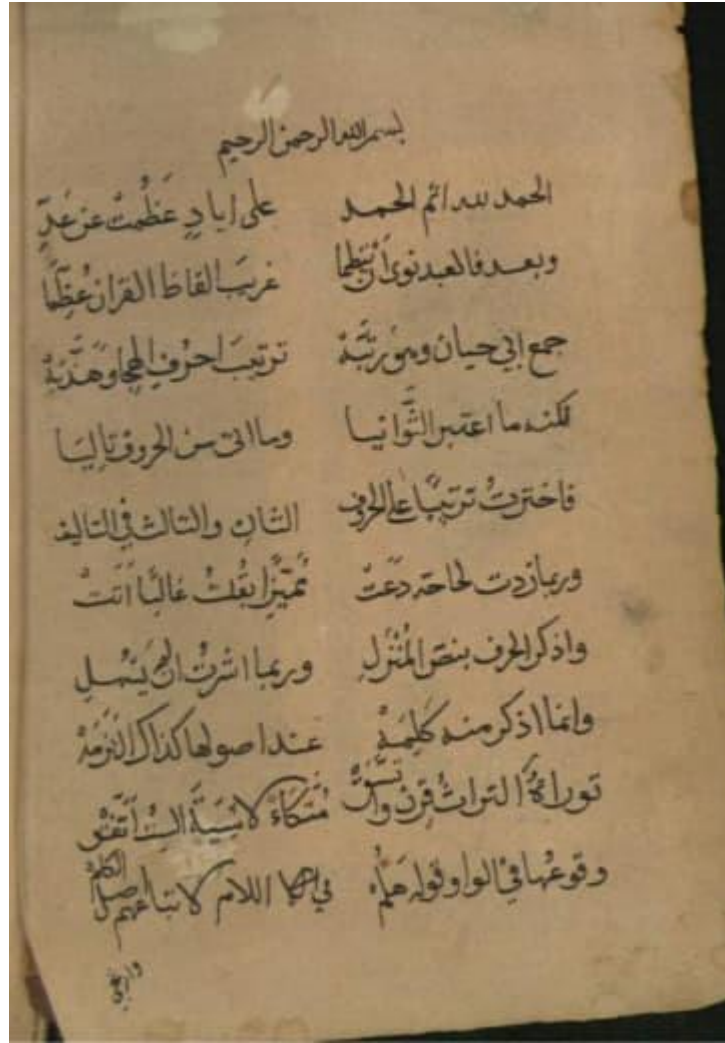 بسم الله الرحمن الرحيم
الحمد لله اتم الحمد على اياد عَظُمتْ عن عَدِّ
وبعد فالعبد نوى أن ينظما غريبَ الفاظ القران عُظِّما
جمع ابي حيان وهو رتَّبَهْ ترتيبَ احرُفِ الهجا وهذَّبَهْ
لكنه ما اعتبر الثَّوانيا وما اتى من الحروف تاليَا
فاخترتُ ترتيبًا على الحروفِ الثانِ والثالث في التاليف
وربما زدت لحاجة دَعَتْ تميُّزا بقُلتُ غالبًا اَتَتْ
واذكر الحرف بنص المُنْزَلِ وربما اشرتُ ان لم يَسْهل
وانما اذكر منه كَلِمَهْ عند اصولها كذاك التزمَهْ
توراةُ التراثُ قِرن واتسق مُتَّكَاءً لاشيةَ الت اَتَّفق
وقوعُها في الواو وقوله هَلُمْ في احرف اللام لاتباعهم اصل الكلم